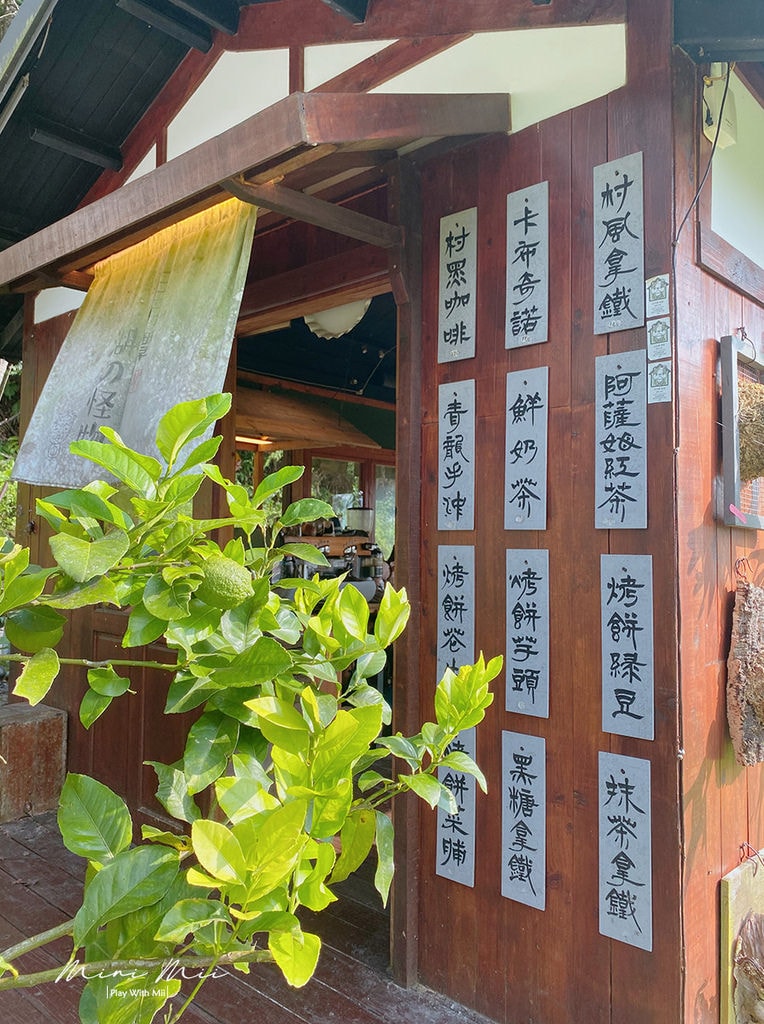 村風拿鐵
卡布奇諾
村黑咖啡
阿薩姆紅茶
鮮奶茶
青龍手沖
烤餅綠豆
烤餅芋頭
烤餅
抹茶拿鐵
黑糖拿鐵
烤餅菜脯
湖の怪
Mini Mii
Play With Mii